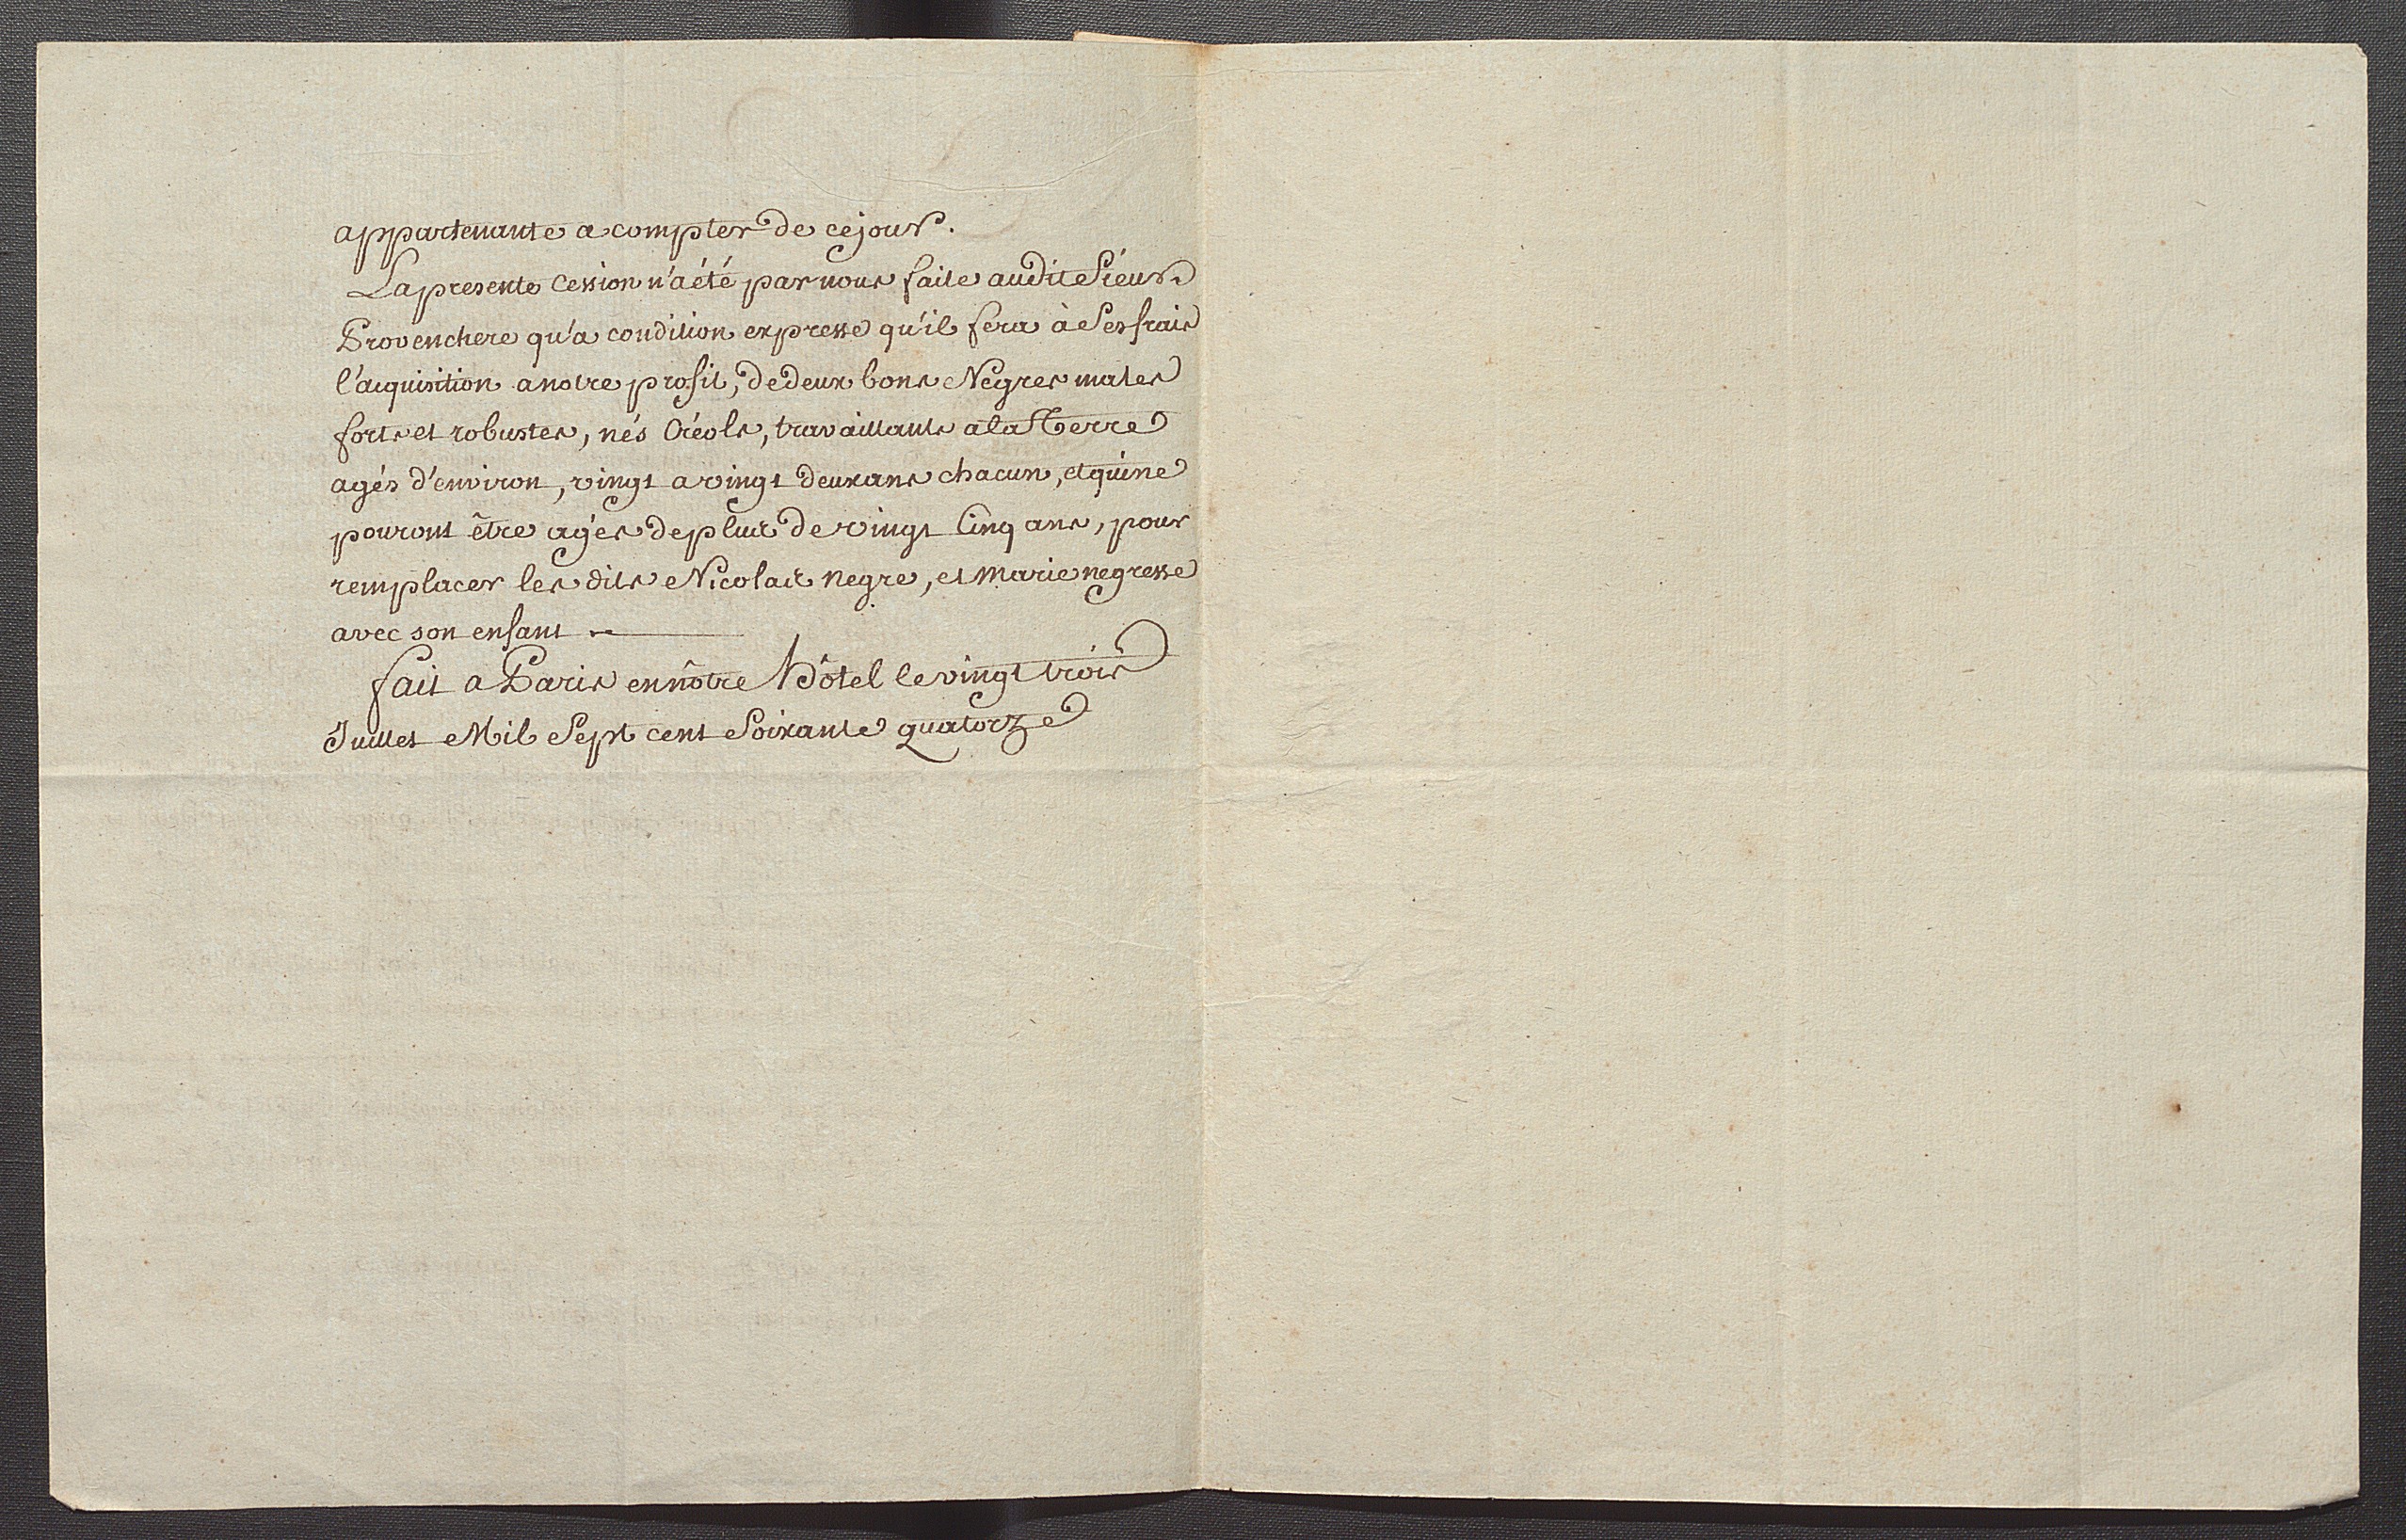 appartenants a compter de ce jour.
La presente Cession n'a été par nous faite audit Sieur
Provenchere qu'a condition expresse qu'il fera à Ses frais
l'acquisition a notre profit, de deux bons Négres males
forts et robustes, nés Créols, travaillants a la Terre
agés d'environ, vingt a vingt deux ans chacun, et qui ne
pouront être agés de plus de vingt Cinq ans, pour
remplacer les dits Nicolas negre, et Marie negresse
avec son enfant
fait a Paris en nôtre hôtel le vingt trois
Juillet Mil Sept cent Soixante quatorze